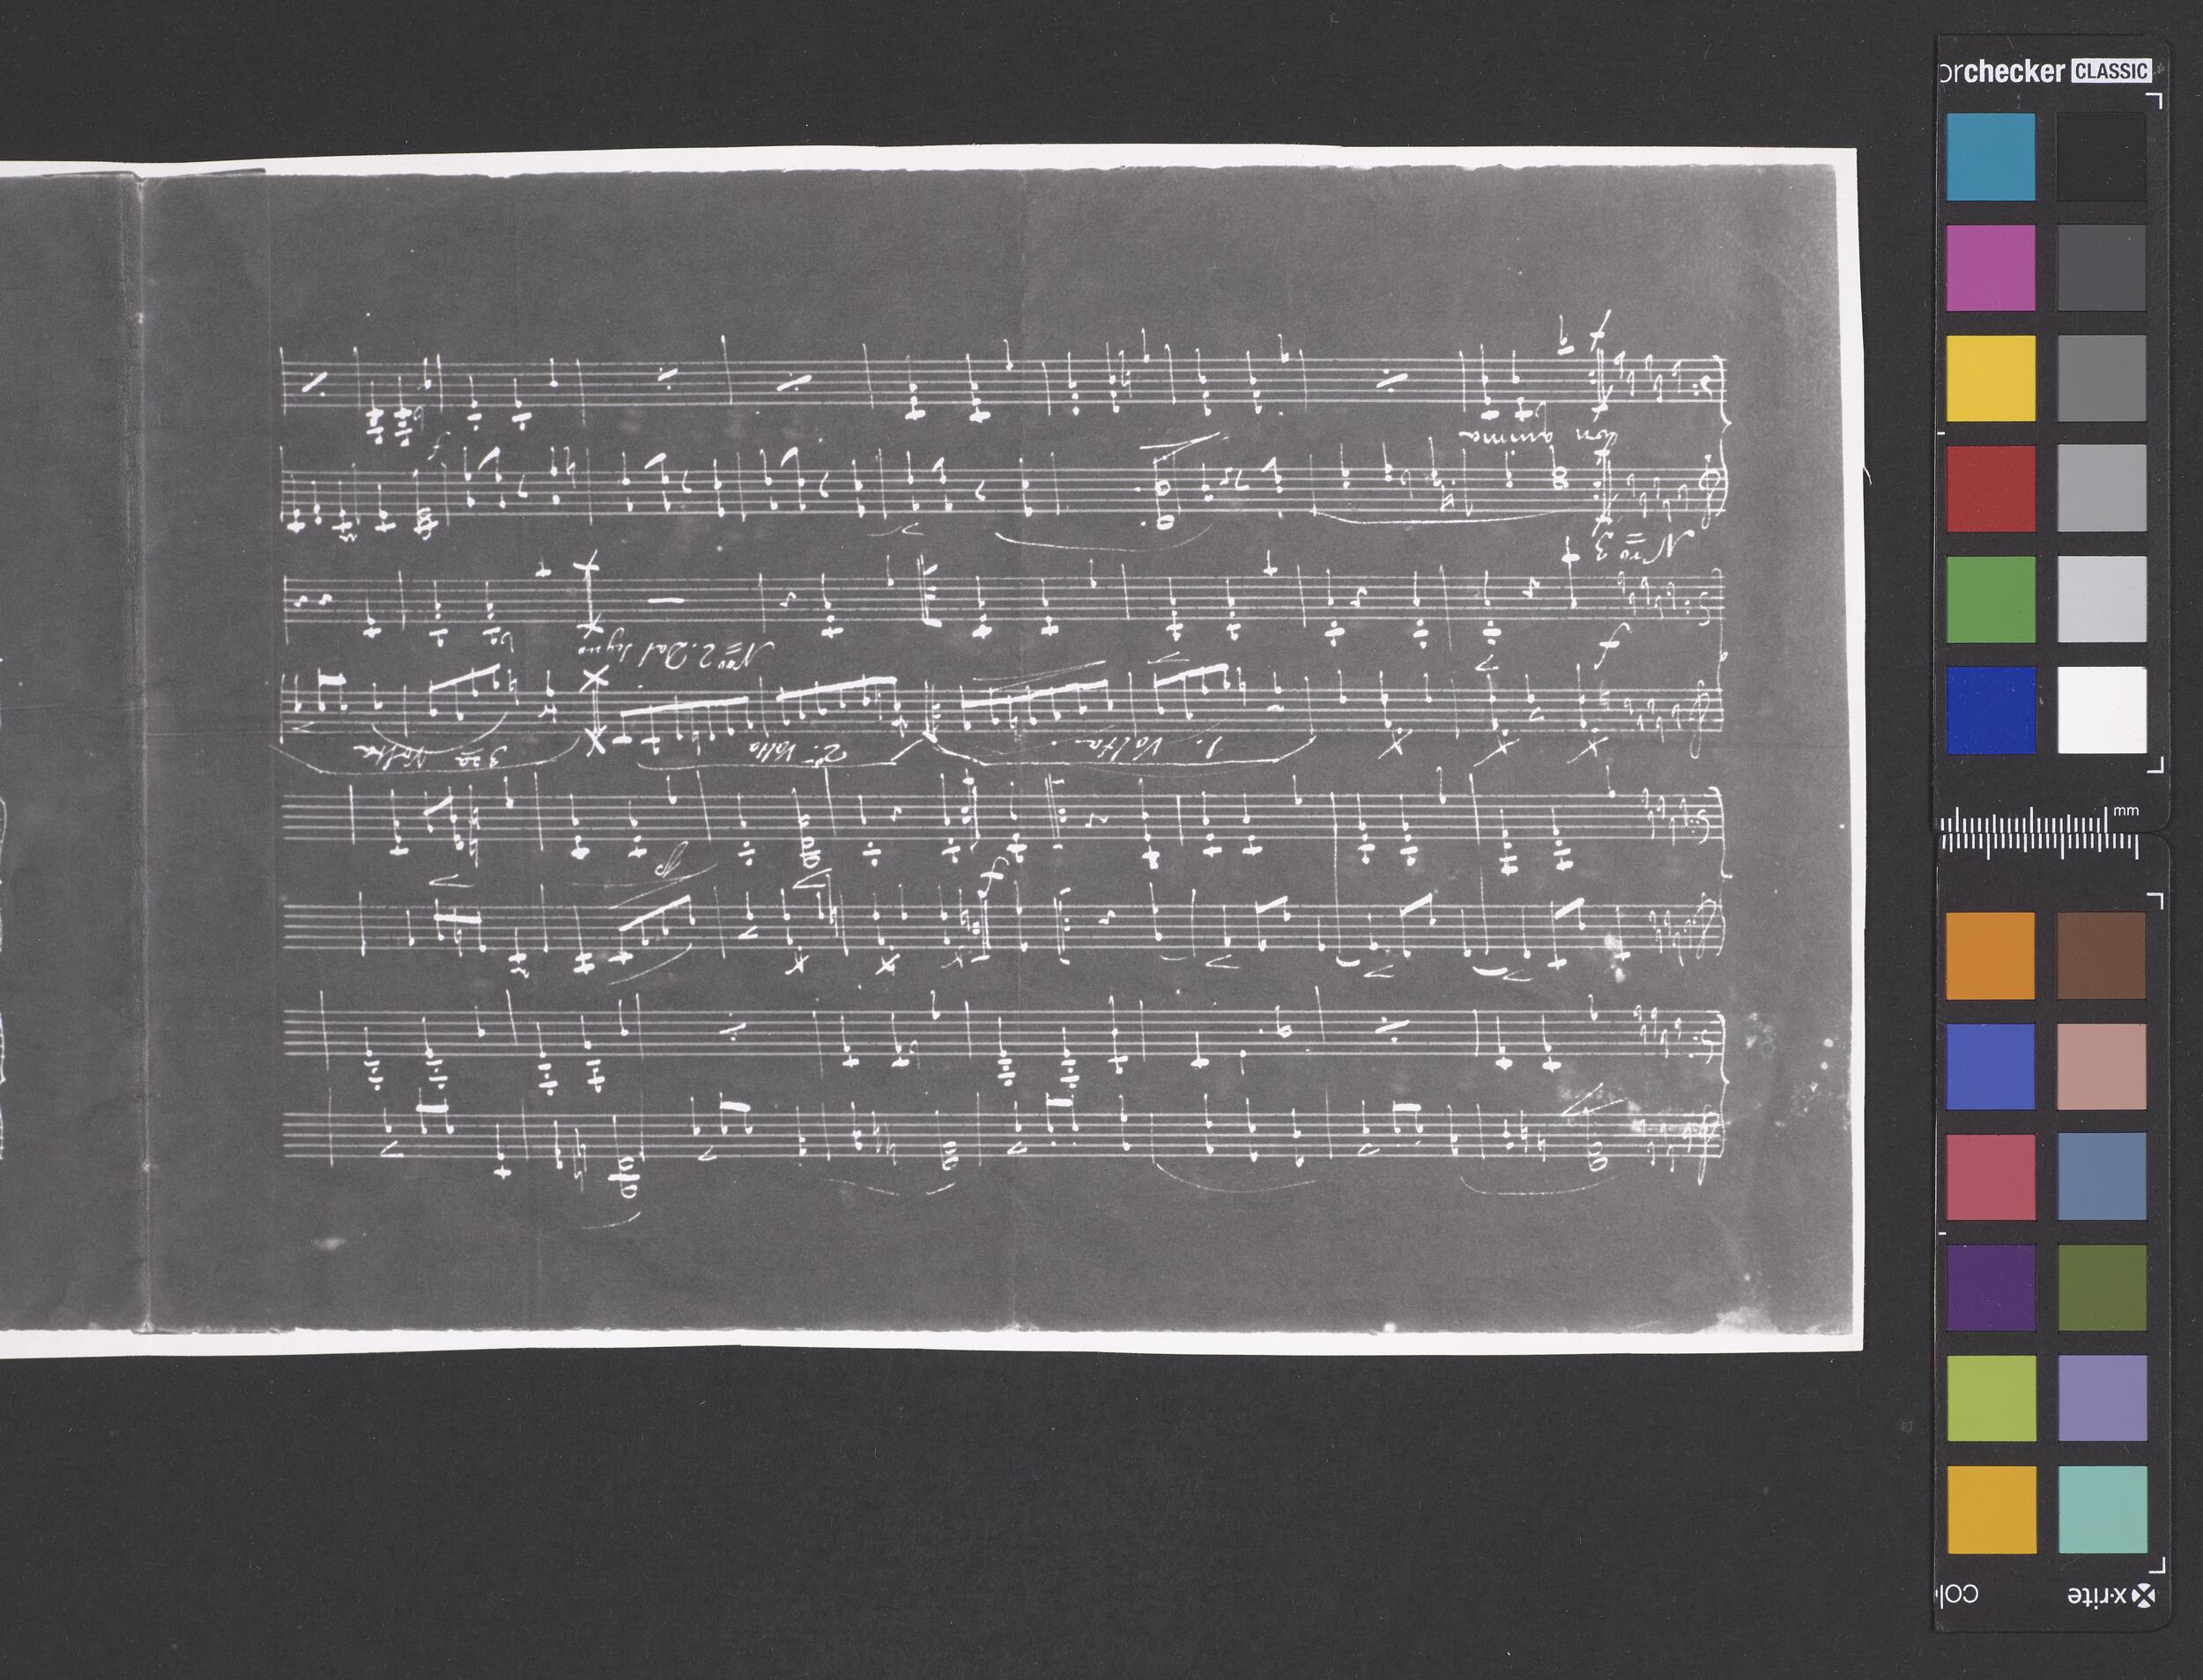 orchecker CLASSIC
mm
x·rite
col
3za Volta
2da Volta
1. Volta
Nro 2. Dal segno
Nro 3
con anima